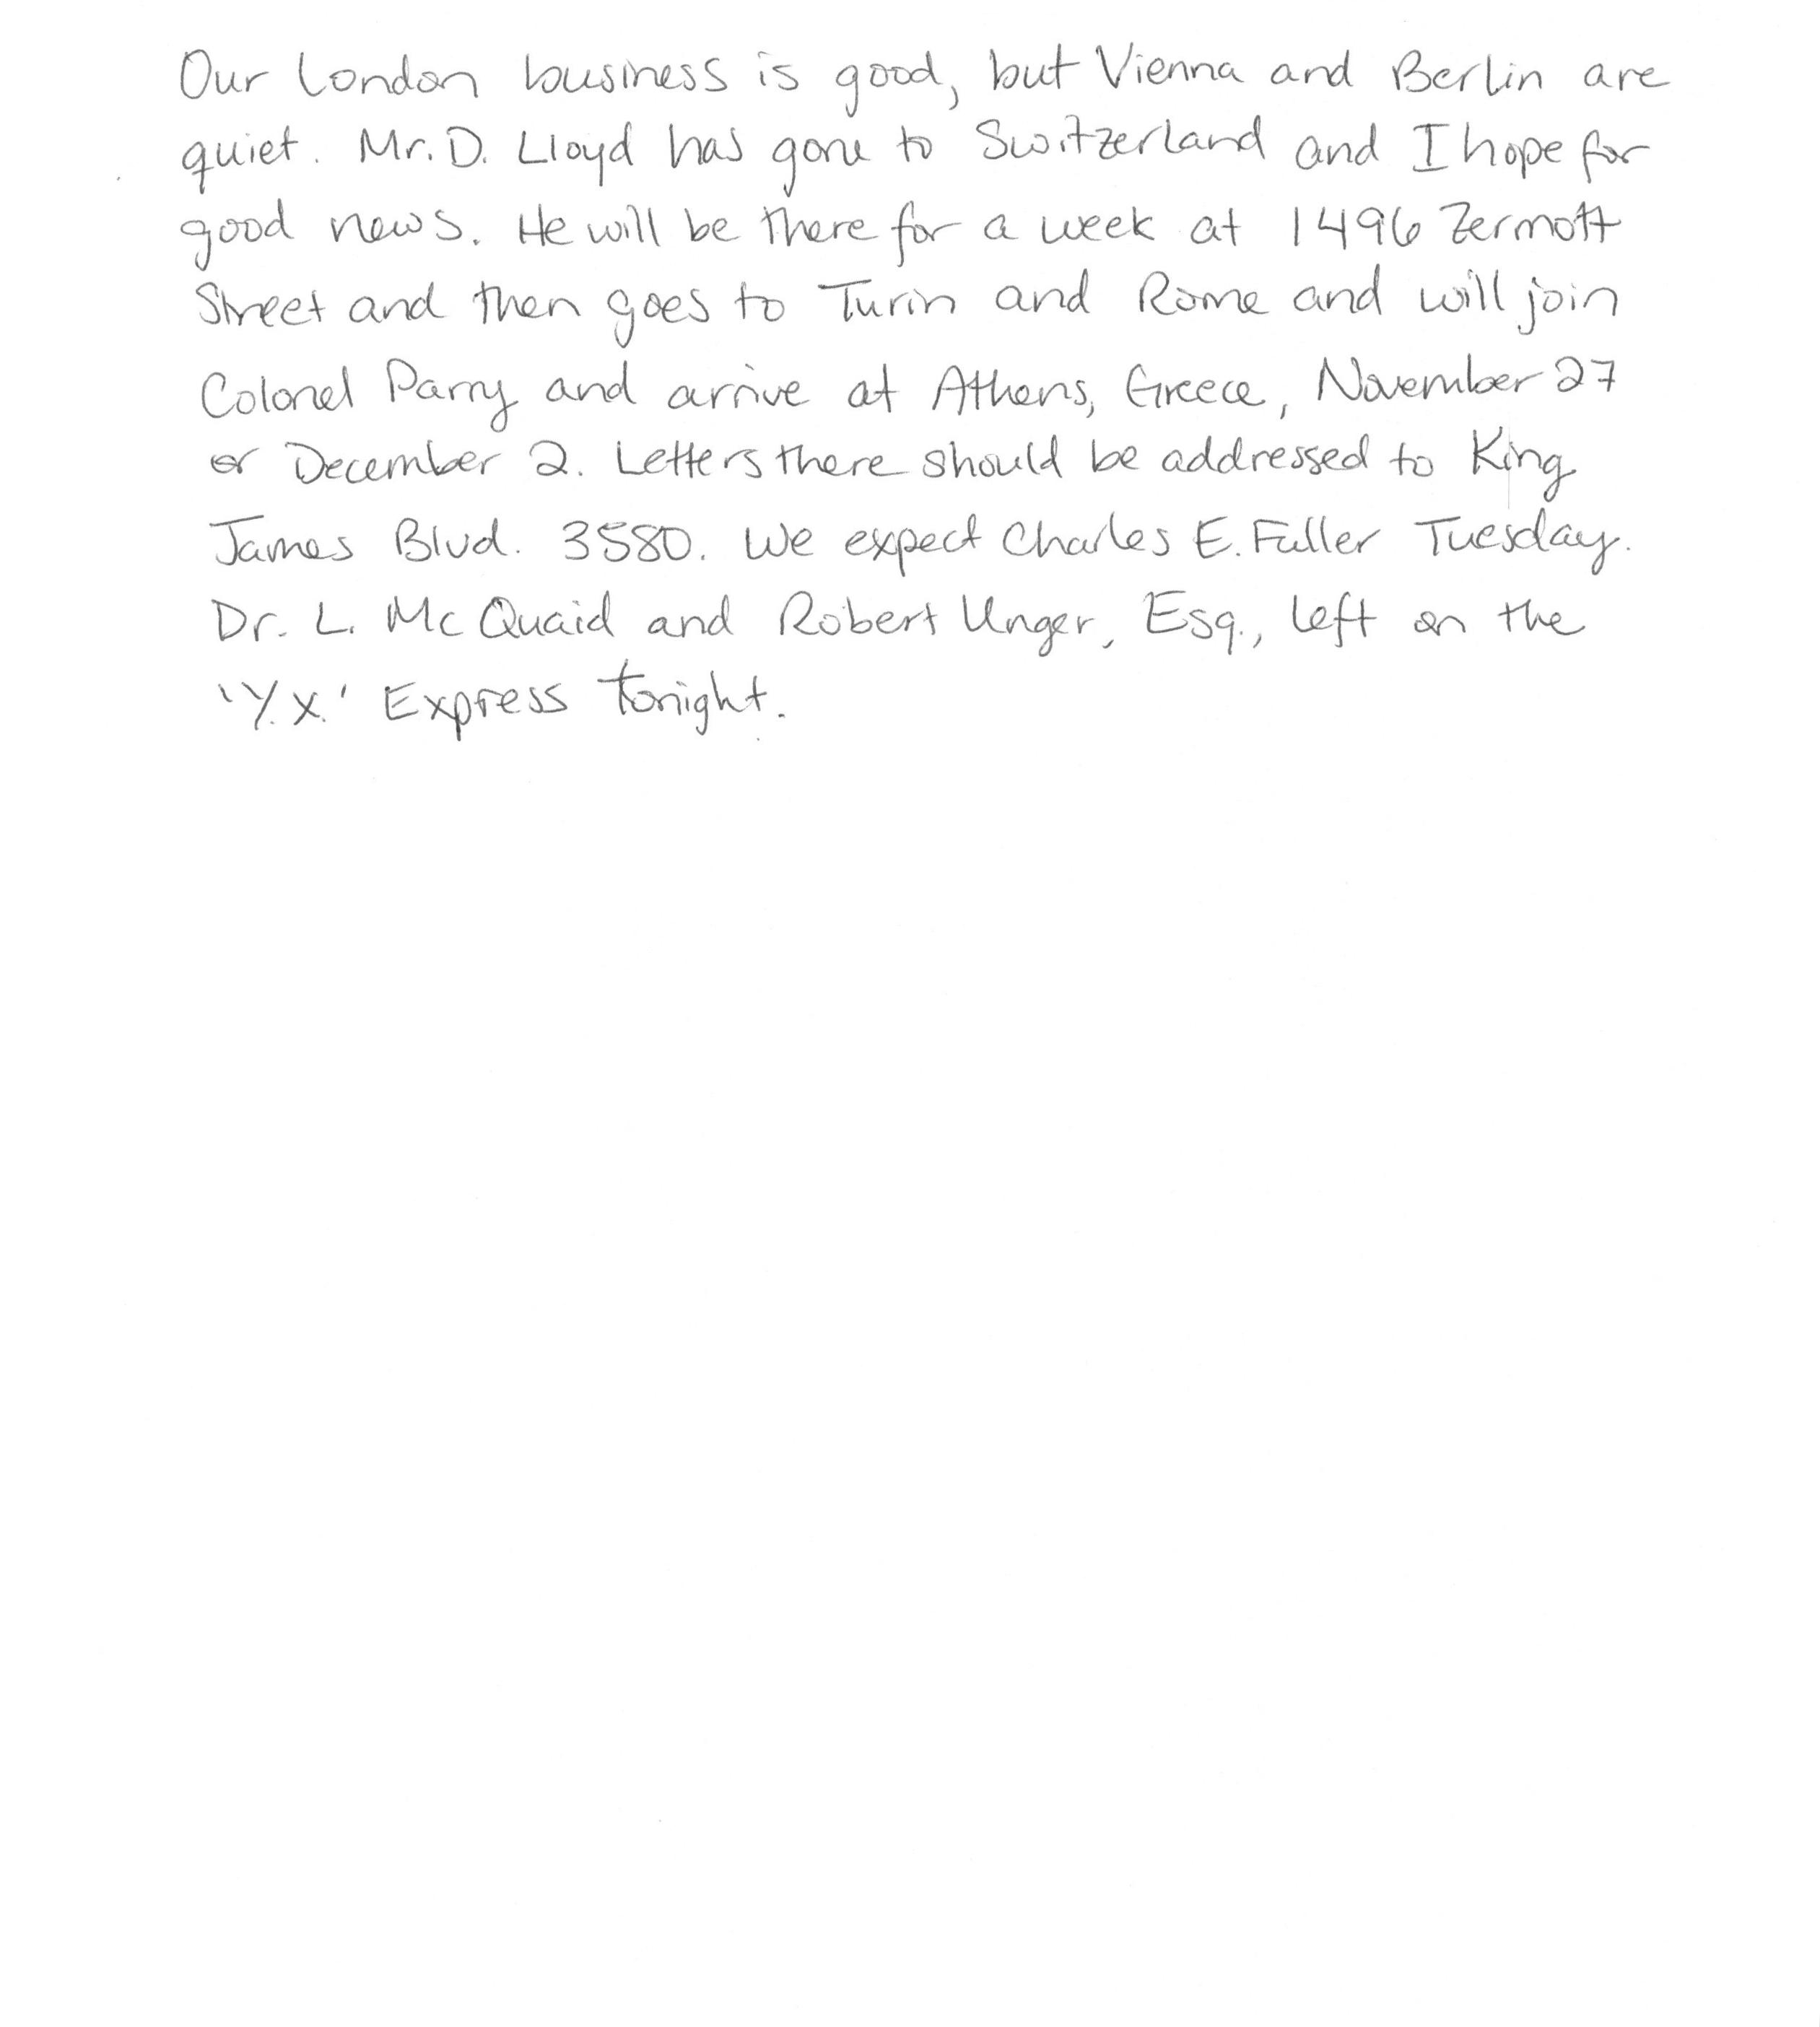 Our London business is good, but Vienna and Berlin are
quiet. Mr. D. Lloyd has gone to Switzerland and I hope for
good news. He will be there for a week at 1496 Zermott
Street and then goes to Turin and Rome and will join
Colonel Parry and arrive at Athens, Greece, November 27
or December 2. Letters there should be addressed to King
James Blvd. 3580. We expect Charles E. Fuller Tuesday.
Dr. L. McQuaid and Robert Unger, Esq., left on the
'Y.X.' Express tonight.